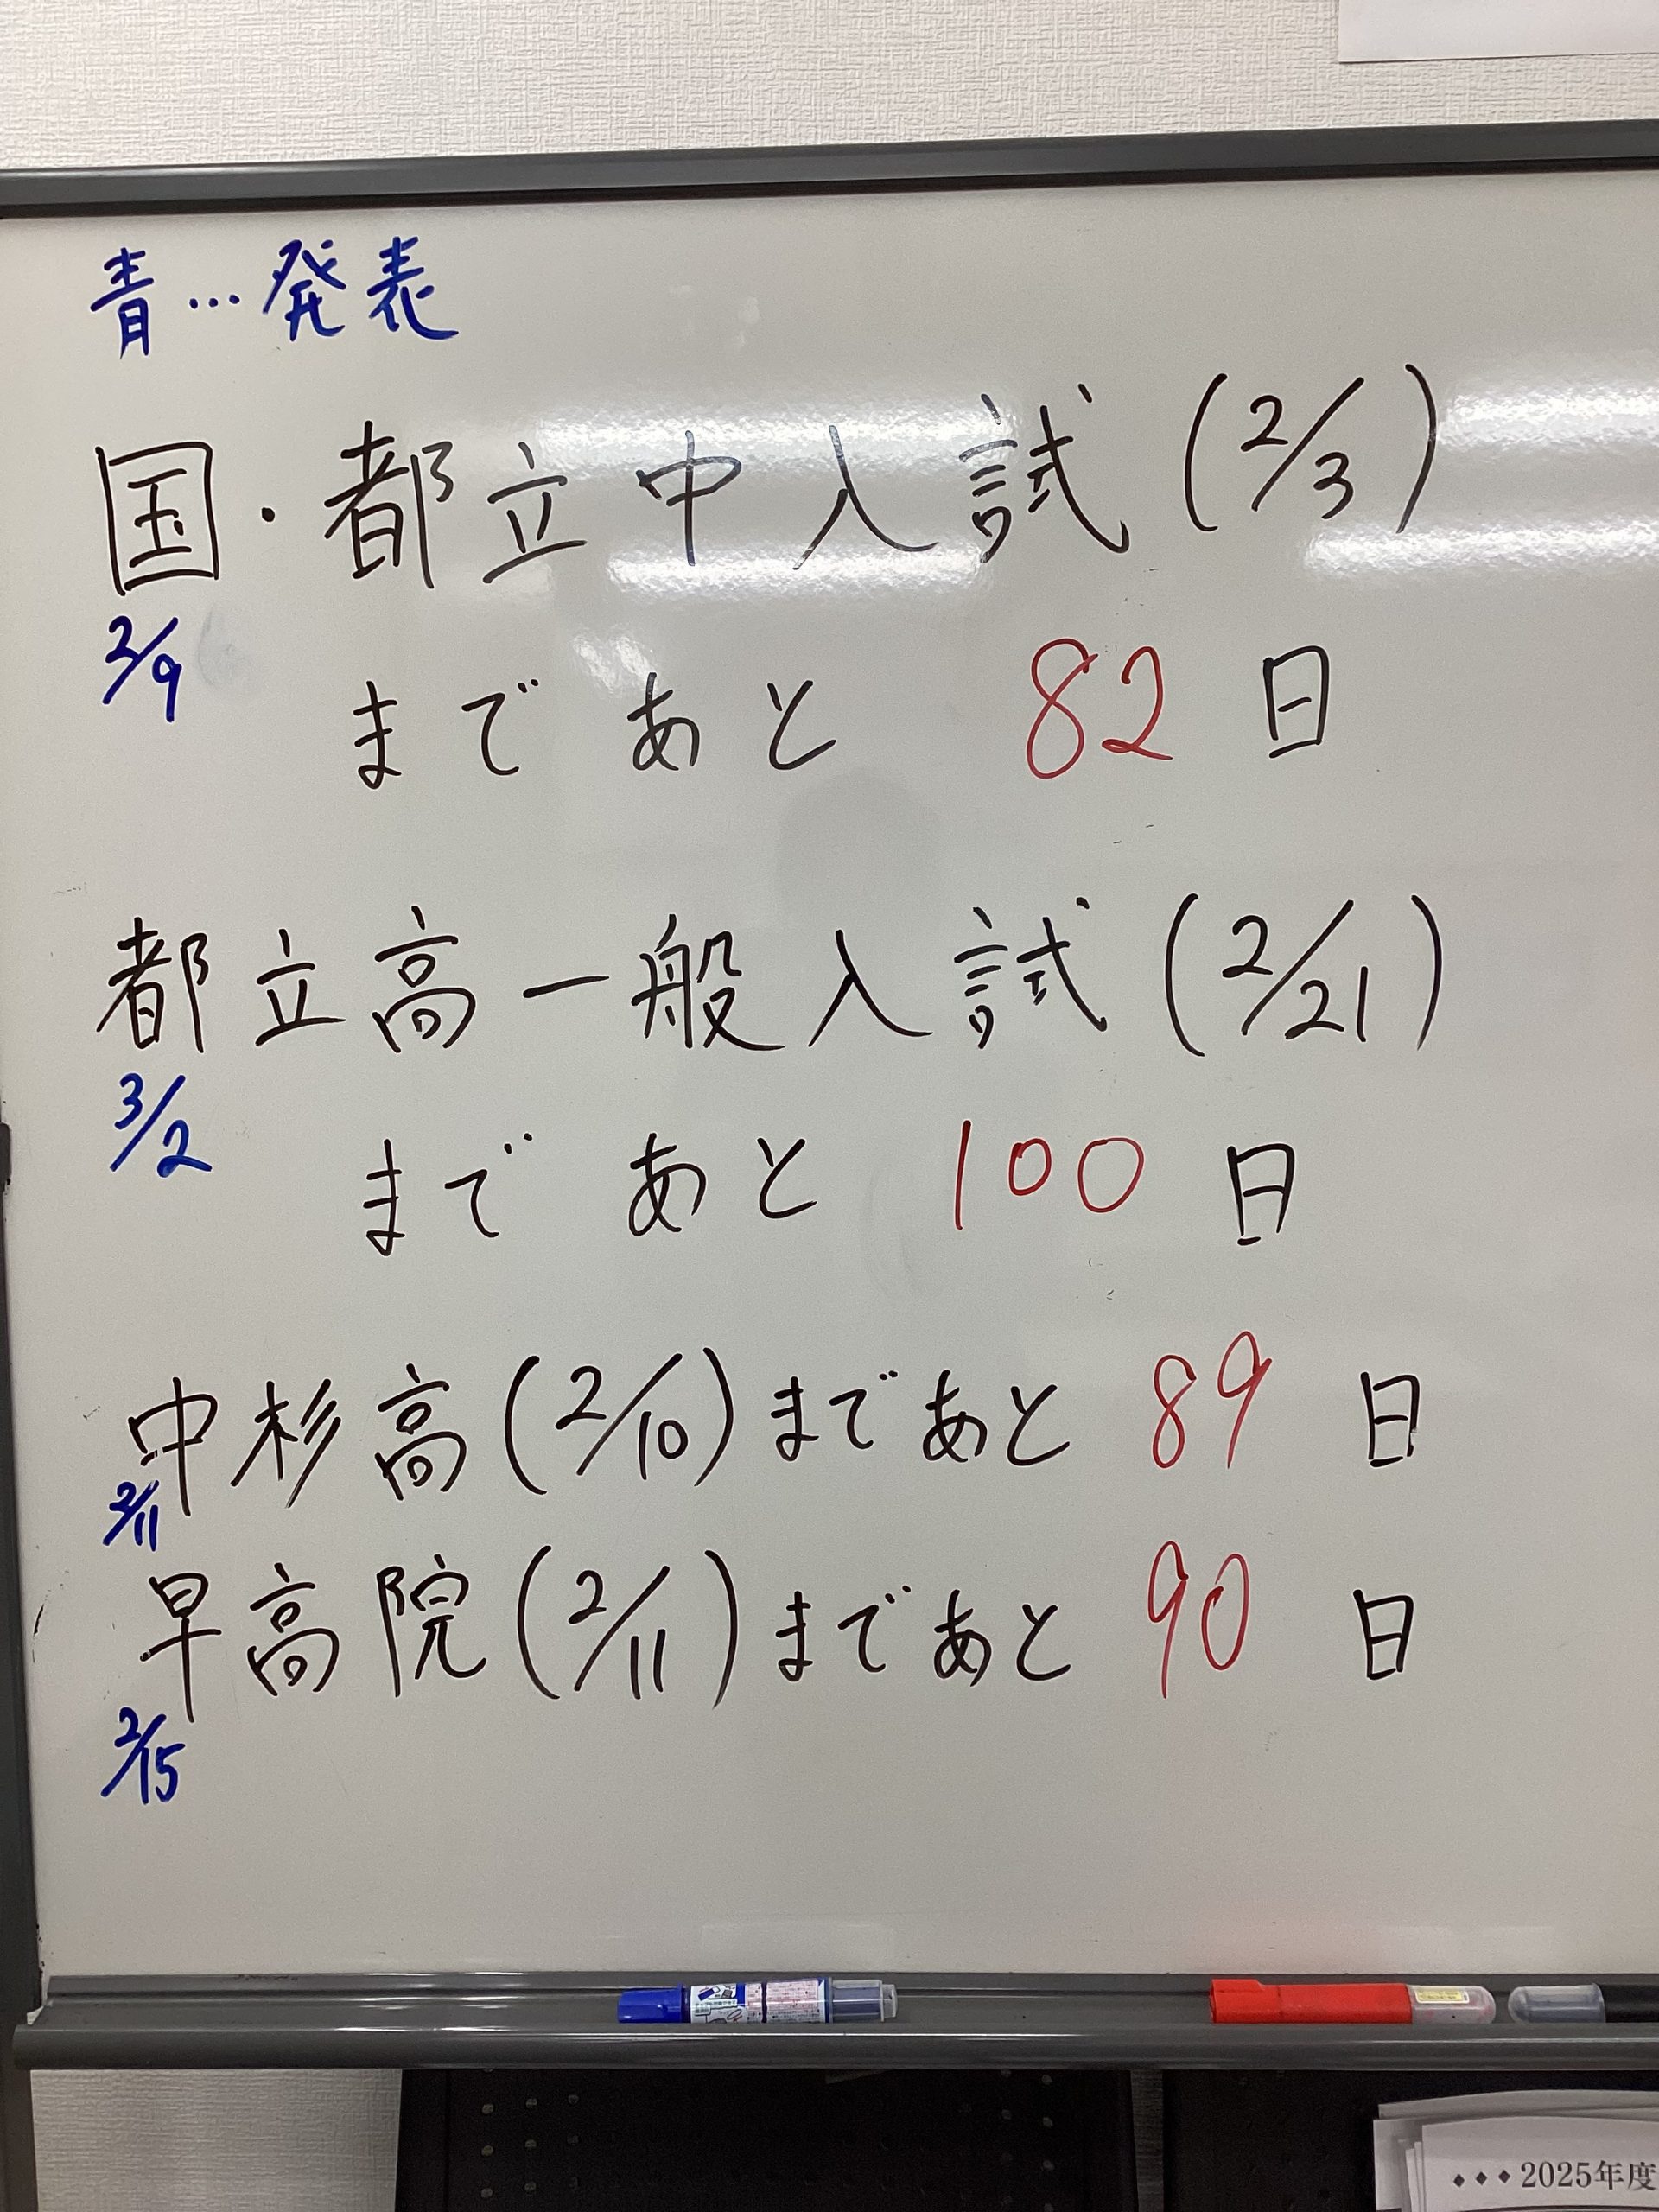 青…発表
国・都立中入試(2/3)
2/9
まで あと 82日
都立高一般入試(2/21)
3/2
まで あと 100日
中杉高(2/10)まであと 89日
2/11
早高院(2/11)まであと 90日
2/15
◆◆◆2025年度